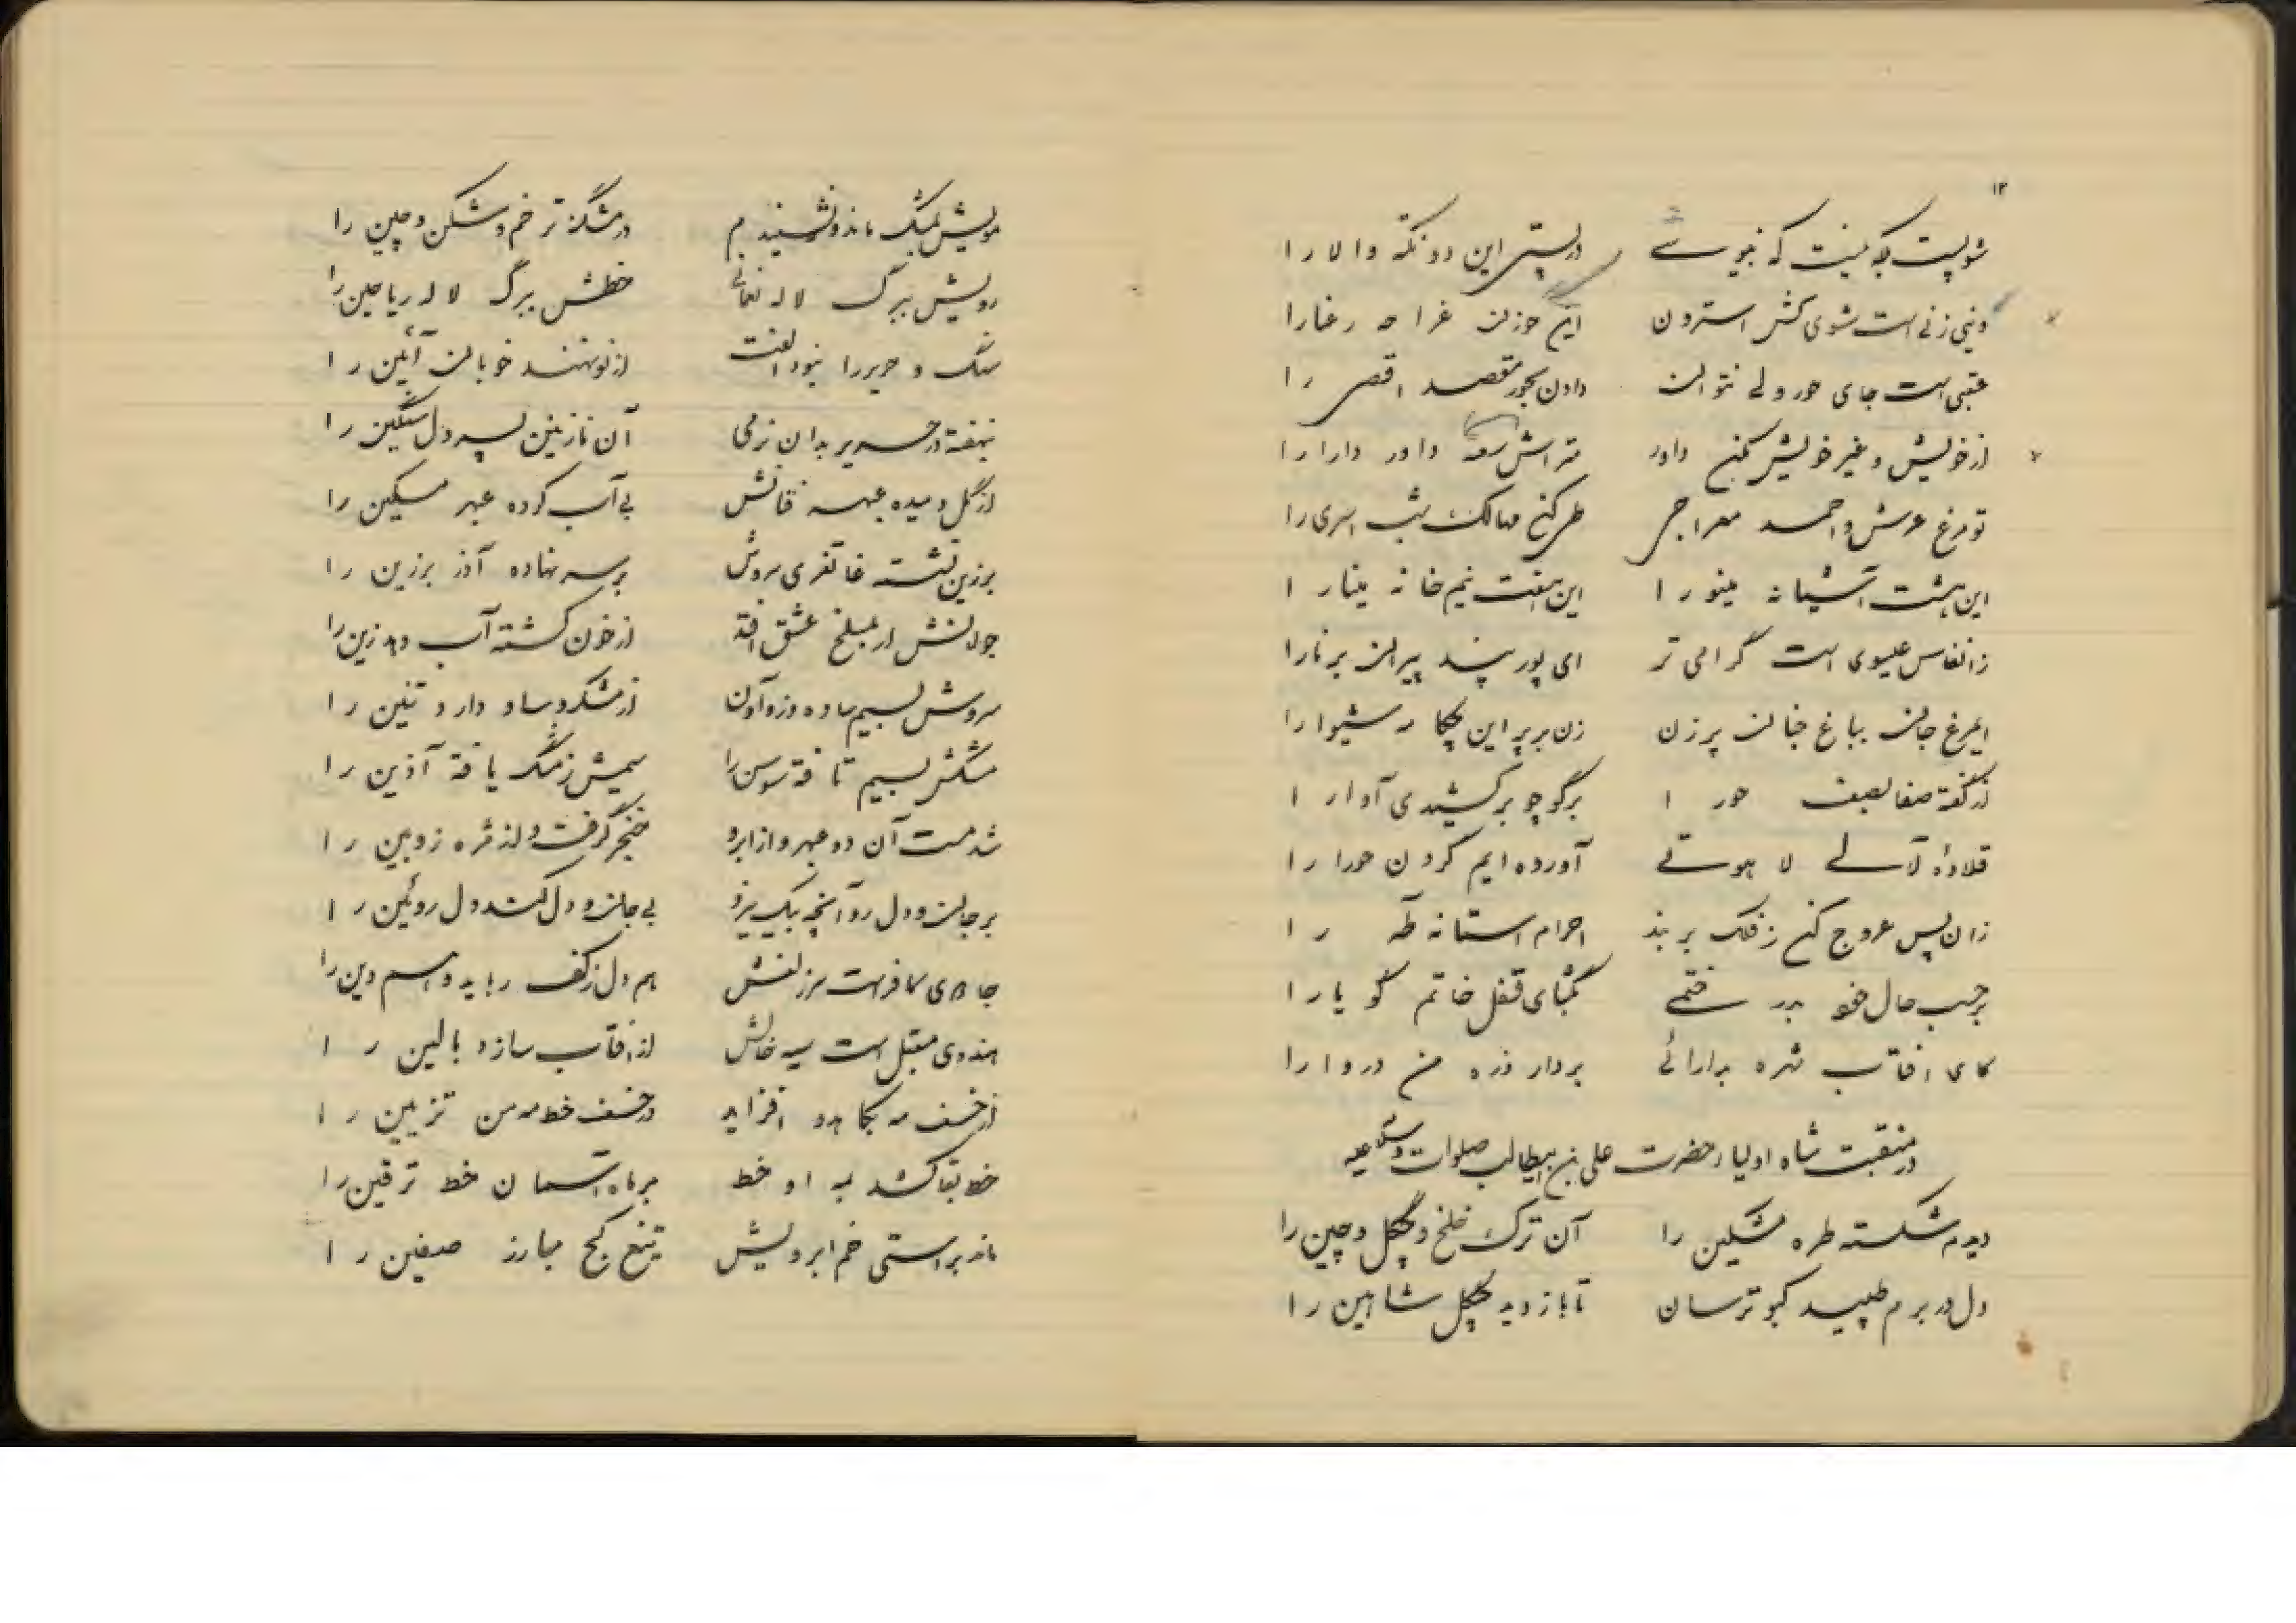 ۱۲
در پستی این دو نکته والا را
دنیی زنی است شوی کش استرون این حوزن غرا مه رعنا را
عقبی است جای حور ولی نتوان دادن بحور مقصد اقصی را
از خویش و غیر خویش مکن داور متراش داور دارا را
تو مرغ عرش و احمد معراجی طی کن مسالک شب اسری را
این هشت آشیانه مینو را این هفت نیم خانه مینا را
ز انفاس عیسوی است گرامی تر ای پور پند پیران برنا را
ایمرغ جان بباغ جنان پر زن زن بر پر این چکامه شیوا را
از گفته صفا بصف حورا برگو چو برکشیدی آوا را
قلاده لآلی لاهوتی آورده ایم گردن حورا را
زان پس عروج کن ز فلک بر بند احرام استانه طه را
بر حسب حال خود بدر ختمی بگشای قفل خاتم گویا را
کای افتاب شهره بدارائی بردار ذره من دروا را
در منقبت شاه اولیاء حضرت علی بن ابیطالب صلوات و سلام علیه
دیدم شکسته طره مشکین را آن ترک خلخ و چگل و چین را
دل در برم طپید کبوترسان تا باز دید چنگل شاهین را
مویش بمشک ماند و نشنیدم در مشک تر خم و شکن و چین را
رویش ببرگ لاله نعمانی خطش ببرگ لاله ریاحین را
سنگ و حریر را نبود الفت از نو نهند خوبان آئین را
نهفته در حریر بدان نرمی آن نازنین پسر دل سنگین را
از گل دمیده عبهر فتانش بی آب کرده عبهر مسکین را
بر زین نشسته غاتفری سروش بر سر نهاده آذر برزین را
جولانش ار بمسلخ عشق افتد از خون کشته آب دهد زین را
سروش بسیم ساده از مشک و تنین را
مشکش بسیم تافته سوسن را سیمش ز مشک یافته آذین را
شد مست آن دو عبهر و از ابرو خنجر گرفت و از مژه زوبین را
بر جان و دل رود آنچه بی جان و دل کند دل روئین را
جادوی کافر است سر زلفش هم دل ز کف رباید و هم دین را
هندوی مقبل است سیه خالش از افتاب سازد بالین را
از خسف مه بکاهد و افزاید در خسف خط مه من تزیین را
خط بقا کشد به او خط بر ماه آسمان خط ترقین را
ماند براستی خم ابرویش تیغ کج مبارز صفین را